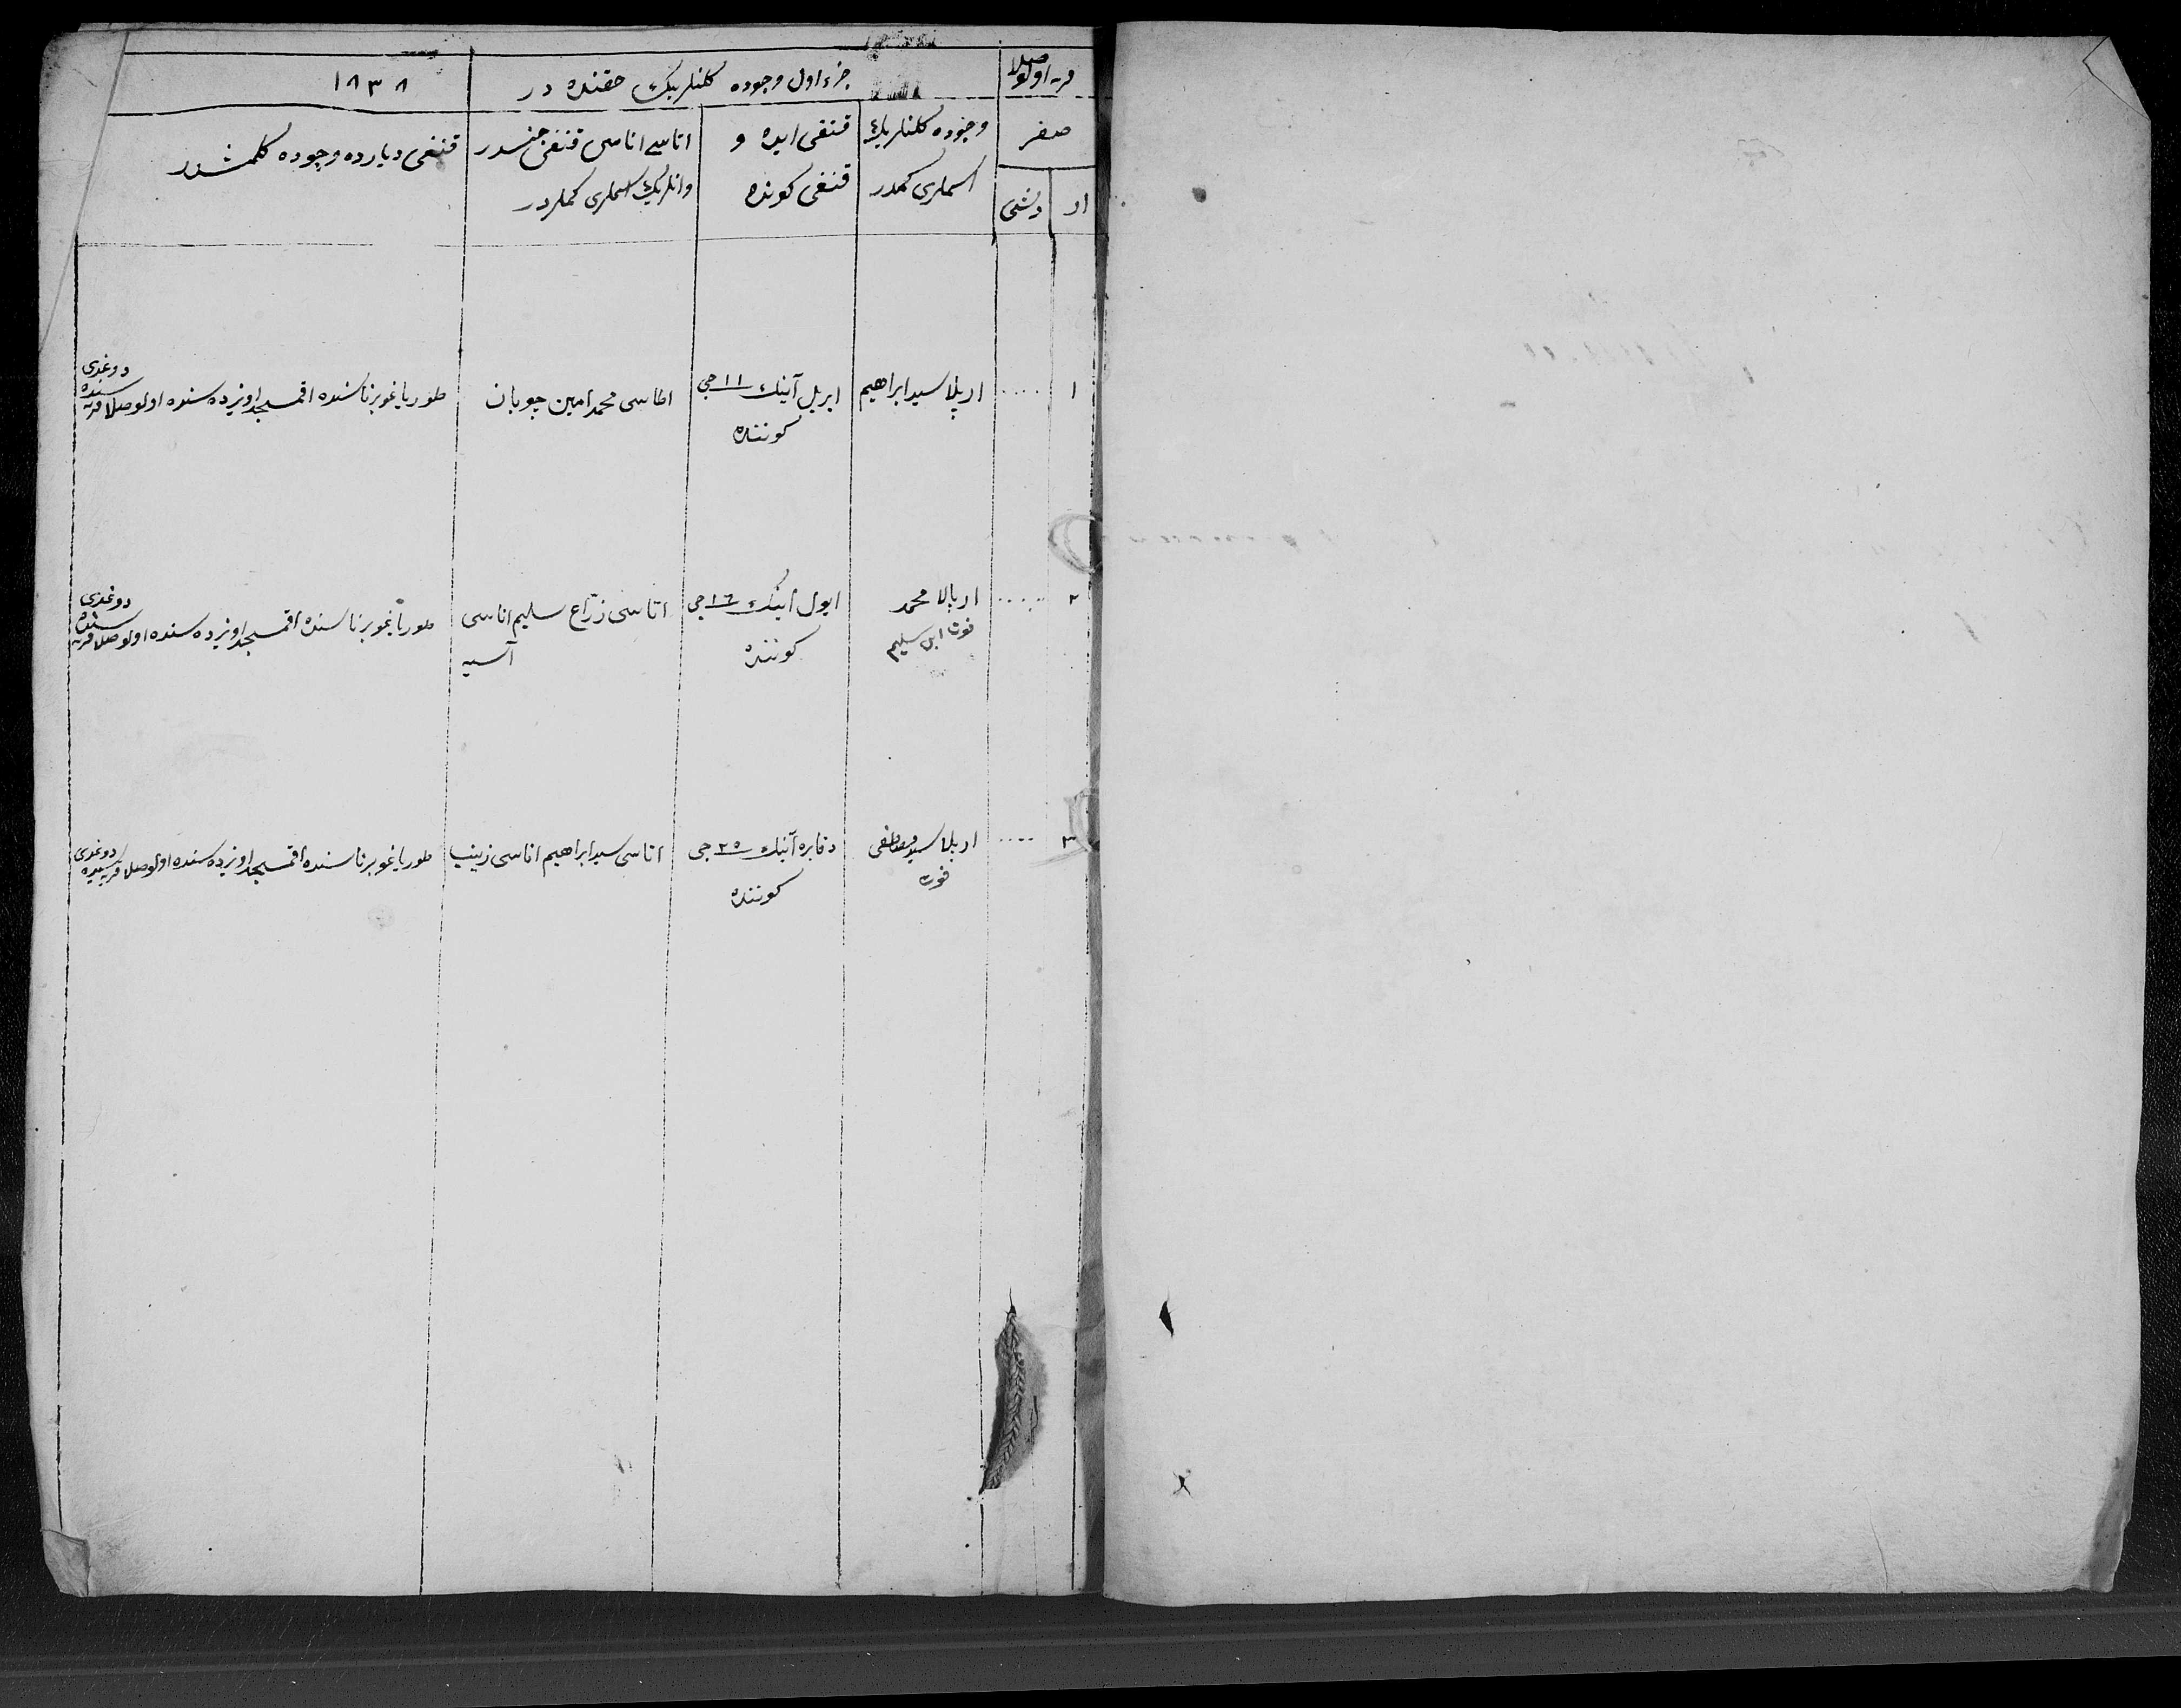 قریه اولوصلا
جزء اول وجوده کلنلرینک حقنده در
١٨٣٨
صفر
ار
دیشی
وجوده کلنلرینک
اسملری کمدر
قنغی ایده و
قنغی کونده
اتاسی اناسی قنغی جنسدر
وانلرینک اسملری کملردر
قنغی دیارده وجوده کلمشدر
١
ار بالا سید ابراهیم
ابریل آینک ١١ جی
کوننده
اطاسی محمد امین چوبان
طوریا غوبرناسنده اقمسجد اویزدهسنده اولوصلا قریه
سنده
دوغدی
٢
ار بالا محمد
فوت ابن سلیم
ایول اینک ١٦ جی
کوننده
اتاسی زراع سلیم اناسی
آسیه
طوریا غوبرناسنده اقمسجد اویزدهسنده اولوصلا قریه
سنده
دوغدی
٣
ار بالا سید مصطفی
فوت
دقابره آینک ٢٥ جی
کوننده
اتاسی سید ابراهیم اناسی زینب
طوریا غوبرناسنده اقمسجد اویزدهسنده اولوصلا قریه
سنده
دوغدی